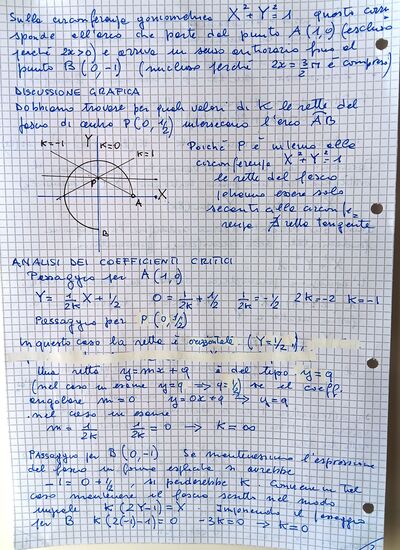 Sulla circonferenza goniometrica X²+Y²=1 questo corri
sponde all'arco che parte dal punto A(1,0) (escluso
perché 2x>0) e arriva in senso antiorario fino al
punto B(0,-1) (incluso perché 2x=3/2 π è compreso)
DISCUSSIONE GRAFICA
Dobbiamo trovare per quali valori di K le rette del
fascio di centro P(0,1/2) intersecano l'arco AB
K=-1 Y K=0 K=1
P
A X
B
Poiché P è interno alla
circonferenza X²+Y²=1
le rette del fascio
possono essere solo
secanti alla circonfe
renza, ∄ retta tangente
ANALISI DEI COEFFICIENTI CRITICI
Passaggio per A(1,0)
Y= 1/2K X + 1/2 0= 1/2K + 1/2 1/2K=-1/2 2K=-2 K=-1
Passaggio per P(0,1/2)
In questo caso la retta è orizzontale (Y=1/2),
Una retta y=mx+q è del tipo y=q
(nel caso in esame y=q => y=1/2) se il coeff.
angolare m=0 y=0x+q → y=q
nel caso in esame
m= 1/2K 1/2K=0 → K=∞
Passaggio per B(0,-1) Se mantenessimo l'espressione
del fascio in forma esplicita si avrebbe
-1=0+1/2, si perderebbe K. Conviene in tal
caso mantenere il fascio scritto nel modo
K(2Y-1)=X. Imponendo il passaggio
per B K(2(-1)-1)=0 -3K=0 → K=0